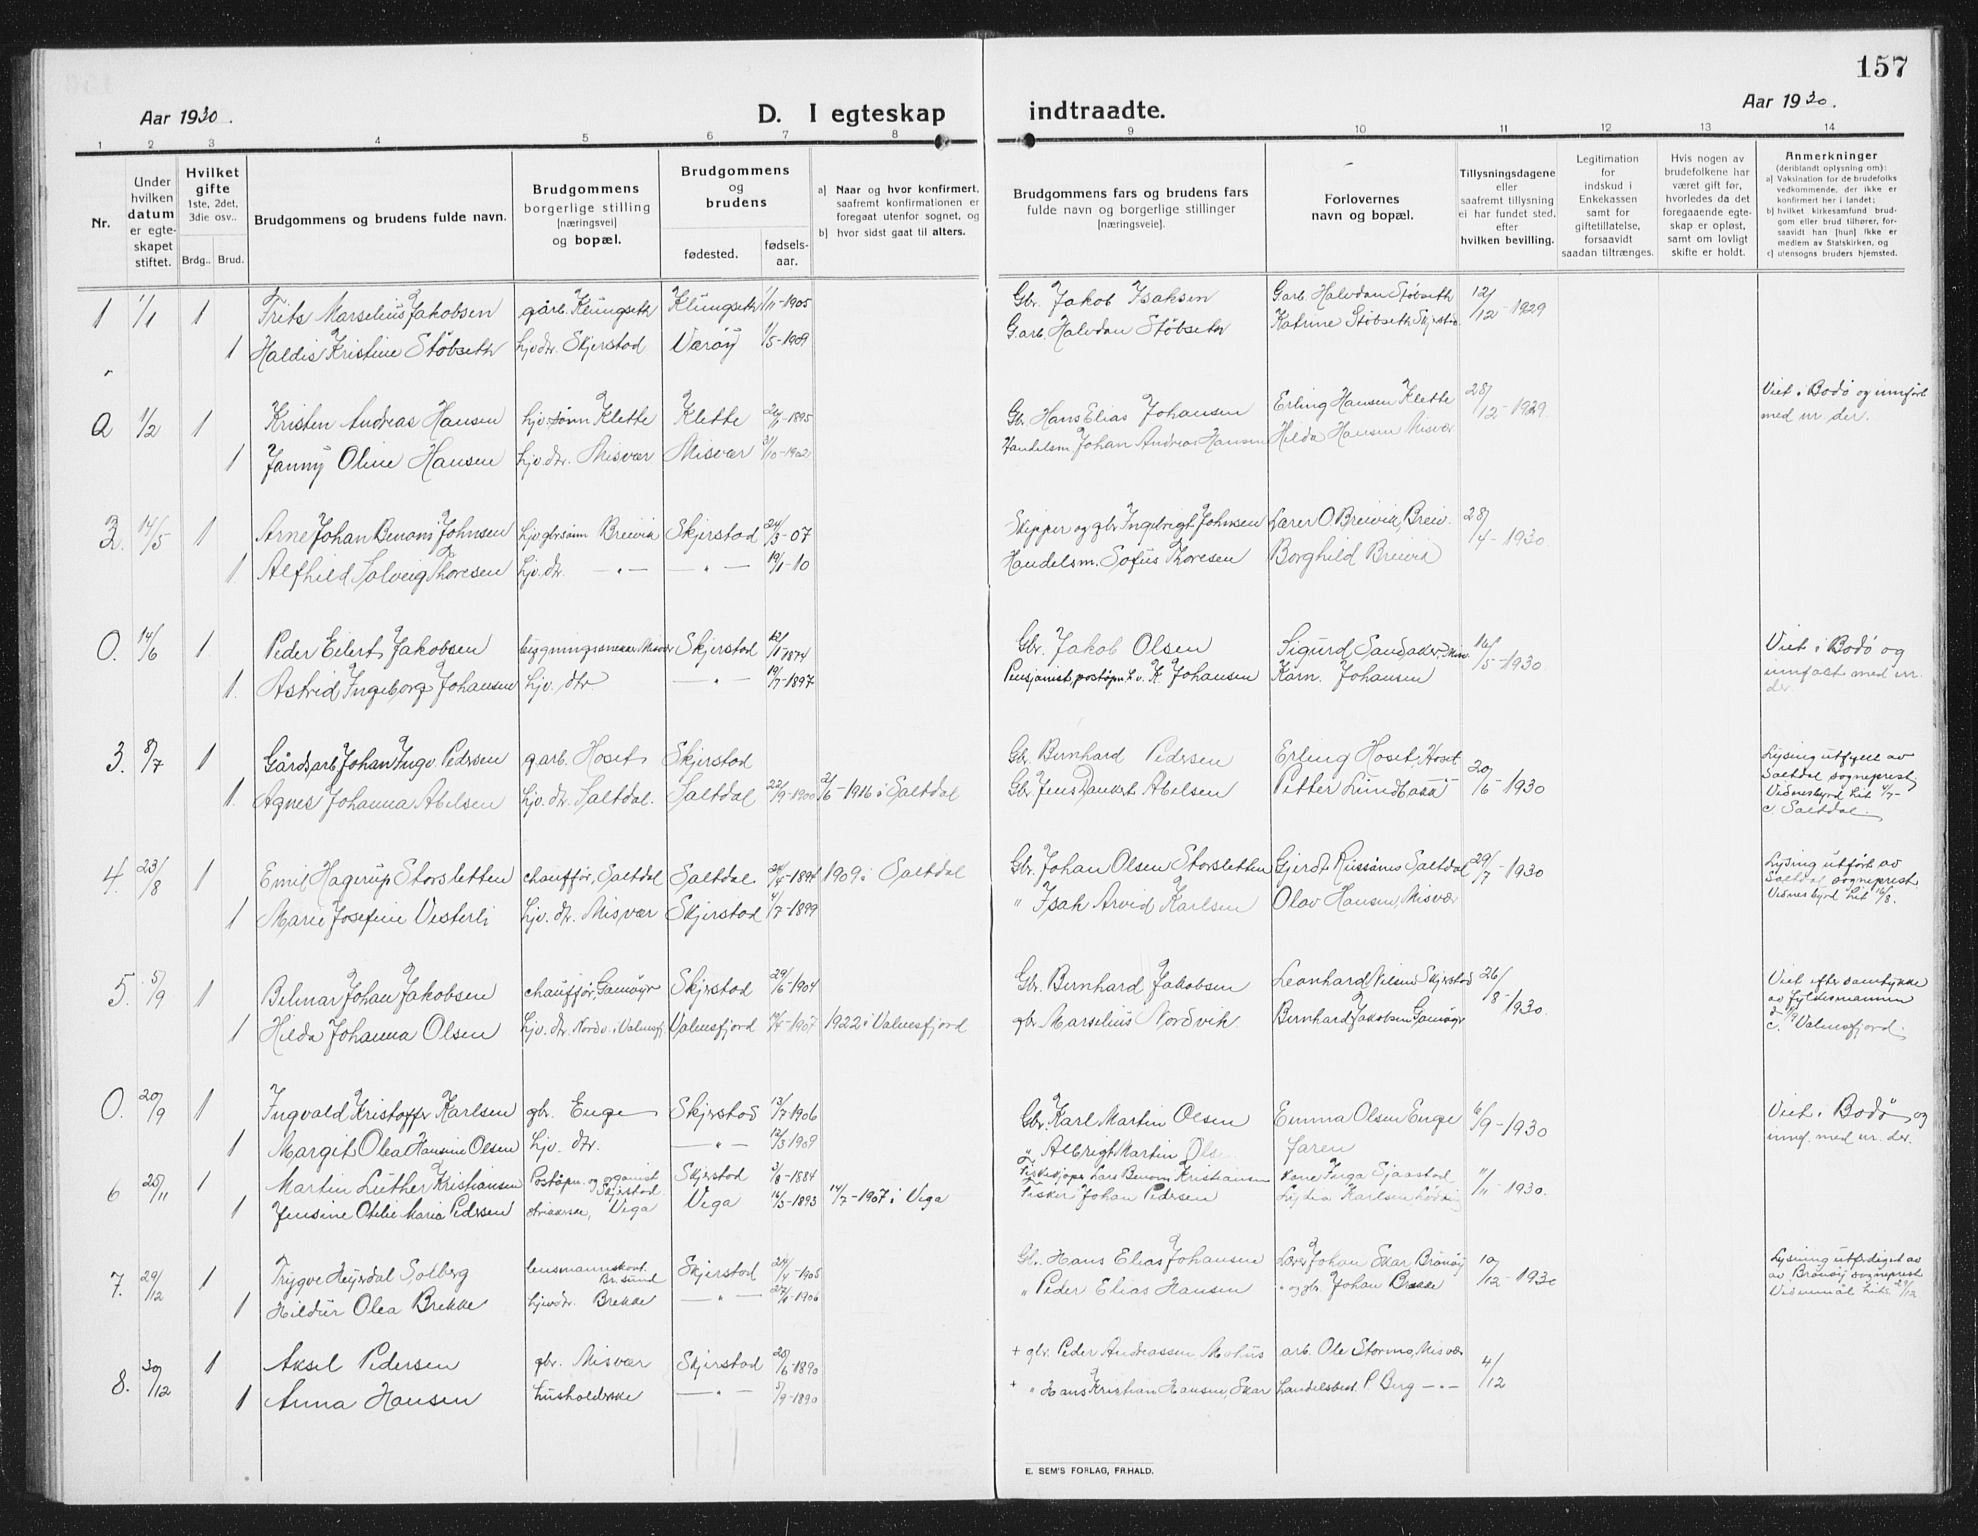 157
Aar 1930.
D. I egteskap
indtraadte.
Aar 1930.
1 2 3 4 5 6 7 8 9 10 11 12 13 14
Nr.
Under hvilken datum er egteskapet stiftet.
Hvilket gifte 1ste, 2det, 3die osv..
Brdg.. Brud.
Brudgommens og brudens fulde navn.
Brudgommens borgerlige stilling [næringsvei] og bopæl.
Brudgommens og brudens
fødested.
fødsels-aar.
a) Naar og hvor konfirmert, saafremt konfirmationen er foregaat utenfor sognet, og
b) hvor sidst gaat til alters.
Brudgommens fars og brudens fars fulde navn og borgerlige stillinger [næringsveie].
Forlovernes navn og bopæl.
Tillysningsdagene eller saafremt tillysning ei har fundet sted, efter hvilken bevilling.
Legitimation for indskud i Enkekassen samt for giftetillatelse, forsaavidt saadan tiltrænges.
Hvis nogen av brudefolkene har været gift før, hvorledes da det foregaaende egteskap er opløst, samt om lovligt skifte er holdt.
Anmerkninger (deriblandt oplysning om):
a) Vaksination for de brudefolks vedkommende, der ikke er konfirmert her i landet;
b) hvilket kirkesamfund brudgom eller brud tilhører, forsaavidt han [hun] ikke er medlem av Statskirken, og
c) utensogns bruders hjemsted.
1 1/1 1 Frits Marselius Jakobsen gårb. Klungseth Klungseth 1/11-1905 Gbr. Jakob Isaksen Garb. Halvdan Støbseth 12/12-1929
1 Haldis Kristine Støbseth hjv. dtr. Skjerstad Værøy 1/5-1909 Garb. Halvdan Støbseth Katrine Støbseth Skjerstad
1/2 1 Kristen Andreas Hansen hjv. sønn Klette Klette -1895 Gb. Hans Elias Johansen Erling Hansen Klette 28/12-1929 Viet i Bodø og innført med nr. der.
1 Janny Oline Hansen hjv. dtr. Misvær Misvær 3/10-1902 Handelsm. Johan Andreas Hansen Hilda Hansen Misvær
2. 14/5 1 Arne Johan Benoni Johnsen hjv. gbrsønn Breivik Skjerstad 24/3-07 Skipper og gbr. Ingebrigt Johnsen Lærer O. Breivik, Breiv. 28/4-1930.
1 Alfhild Solveig Thoresen hjv. dtr. — " — — " — 19/1-10 Handelsm. Sofus Thoresen Borghild Breivik
0. 14/6 1 Peder Eilert Jakobsen bygningssnekker Misvær Skjerstad 1874 Gbr. Jakob Olsen Sigurd Sandaker, Misv. 16/5-1930 Viet i Bodø og innført med nr. der.
1. Astrid Ingeborg Johansen hjv. dtr. — " — 19/7-1897 Pensjonist, postøpn. L. v. K. Johansen Karn. Johansen
3. 8/7 1 Gårdsarb. Johan Ingv. Pedersen g. arb. Hoset Skjerstad Gbr. Bernhard Pedersen Erling Hoset, Hoset 20/6-1930 Lysing utført av Saltdal sogneprest
1. Agnes Johanna Abelsen hjv. dtr. Saltdal. Saltdal 22/9-1900 2/6-1916 i Saltdal Gbr. Jens Dankert Abelsen Petter Lundbakk Vidnesbyrd hit 4/7- c. Saltdal.
4. 23/8 1 Emil Hagerup Storsletten chauffør, Saltdal Saltdal. 1909 i Saltdal Gbr. Johan Olsen Storsletten Gjerdt Russånes Saltdal 29/7-1930 Lysing utført av Saltdal sogneprest
1 Marie Josefine Vesterli hjv. dtr. Misvær Skjerstad 4/7-1899 " Isak Arvid Karlsen Olav Hansen, Misvær Vidnesbyrd hit 16/8.
5. 5/9 1 Belmar Johan Jakobsen chauffør, Gamøyr Skjerstad 29/6-1904 Gbr. Bernhard Jakobsen Leonhard Nilsen Skjerstad 26/8-1930. Viet efter samtykke av fylkesmannen
1 Hilda Johanna Olsen hjv. dtr. Nordv. i Valnesfj. Valnesfjord -1907 1922 i Valnesfjord gbr. Marselius Nordvik. Bernhard Jakobsen Gamøyr c. Valnesfjord.
0. 20/9 1 Ingvald Kristoffer Karlsen gbr. Enge Skjerstad 13/7-1906 Gbr. Karl Martin Olsen Emma Olsen Enge 6/9-1930 Viet i Bodø og innf. med nr. der.
1 Margit Olea Hansine Olsen hjv. dtr. — " — 12/3-1909 " Albrigt Martin Olsen faren
6 25/11 1 Martin Luther Kristiansen Poståpn. og organist Skjerstad Skjerstad 3/8-1884 Fiskekjøper Lars Benoni Kristiansen Kone Inga Sjaastad 11/11-1930.
1 Jensine Otelie Maria Pedersen Vega Vega 14/3-1893 14/7-1907 i Vega Fisker Johan Pedersen Lydia Karlsen, Løding
7. 29/12 1 Trygve Heyerdal Solberg lensmannskont. Br.sund Skjerstad 24/4-1905 Gbr. Hans Elias Johansen Lærer Johan Skar Brønøy 10/12-1930 Lysing utferdiget av av Brønøy sogneprest
1 Hildur Olea Brekke hjv. dtr. Brekke — " — 27/6-1906 " Peder Elias Hansen " og gbr. Johan Brekke
8. 30/12 1 Aksel Pedersen gbr. Misvær Skjerstad 20/6-1890 + gbr. Peder Andreassen Mohus arb. Ole Stormo, Misvær 4/12
1 Anna Hansen husholderske — " — 5/9-1890 + " Hans Kristian Hansen, Skar Handelsbest. P. Berg — " —
E. SEM'S FORLAG, FR.HALD.